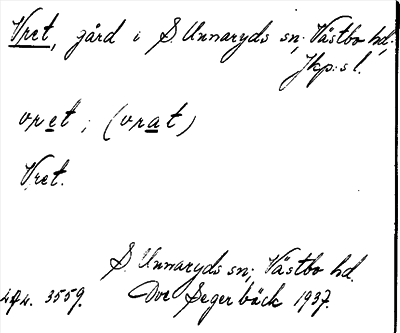 Vret, gård i S. Unnaryds sn; Västbo hd;
Jkp:s l.
vret; (vrat)
Vret.
S. Unnaryds sn; Västbo hd.
3559. Ove Segerbäck 1937.